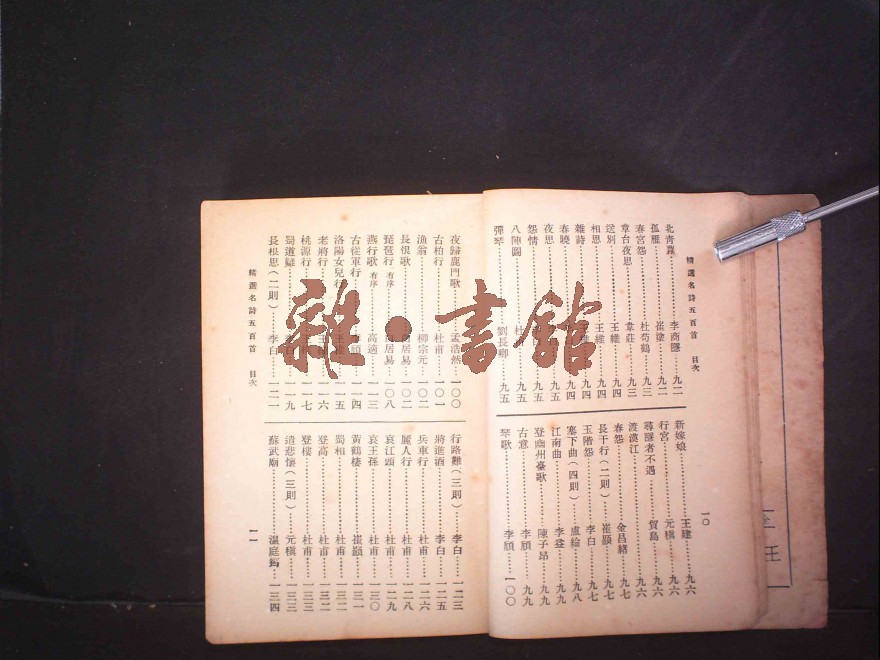 精選名詩五百首 目次
北青蘿 李商隱 九二
孤雁 崔塗 九二
春宮怨 杜荀鶴 九三
章台夜思 韋莊 九三
送別 王維 九四
相思 王維 九四
雜詩 九四
春曉 九四
夜思 九五
怨情 九五
八陣圖 杜 九五
彈琴 劉長卿 九五
新嫁娘 王建 九六
行宮 元稹 九六
尋隱者不遇 賈島 九六
渡漢江 九六
春怨 金昌緒 九七
長干行(二則) 崔顥 九七
玉階怨 李白 九七
塞下曲(四則) 盧綸 九八
江南曲 李益 九九
登幽州臺歌 陳子昂 九九
古意 李頎 九九
琴歌 李頎 一〇〇
一〇
夜歸鹿門歌 孟浩然 一〇〇
古柏行 杜甫 一〇一
漁翁 柳宗元 一〇二
長恨歌 居易 一〇二
琵琶行 有序 居易 一〇八
燕行歌 有序 高適 一一三
古從軍行 頎 一一四
洛陽女兒行 王維 一一五
老將行 一一六
桃源行 一一七
蜀道難 一一九
長根思(二則) 李白 一二一
精選名詩五百首 目次
行路難(三則) 李白 一二三
將進酒 李白 一二五
兵車行 杜甫 一二六
麗人行 杜甫 一二八
哀江頭 杜甫 一二九
哀王孫 杜甫 一三〇
黃鶴樓 崔顥 一三一
蜀相 杜甫 一三二
登高 杜甫 一三二
登樓 杜甫 一三三
遣悲懷(三則) 元稹 一三三
蘇武廟 溫庭筠 一三四
一一
雜·書館